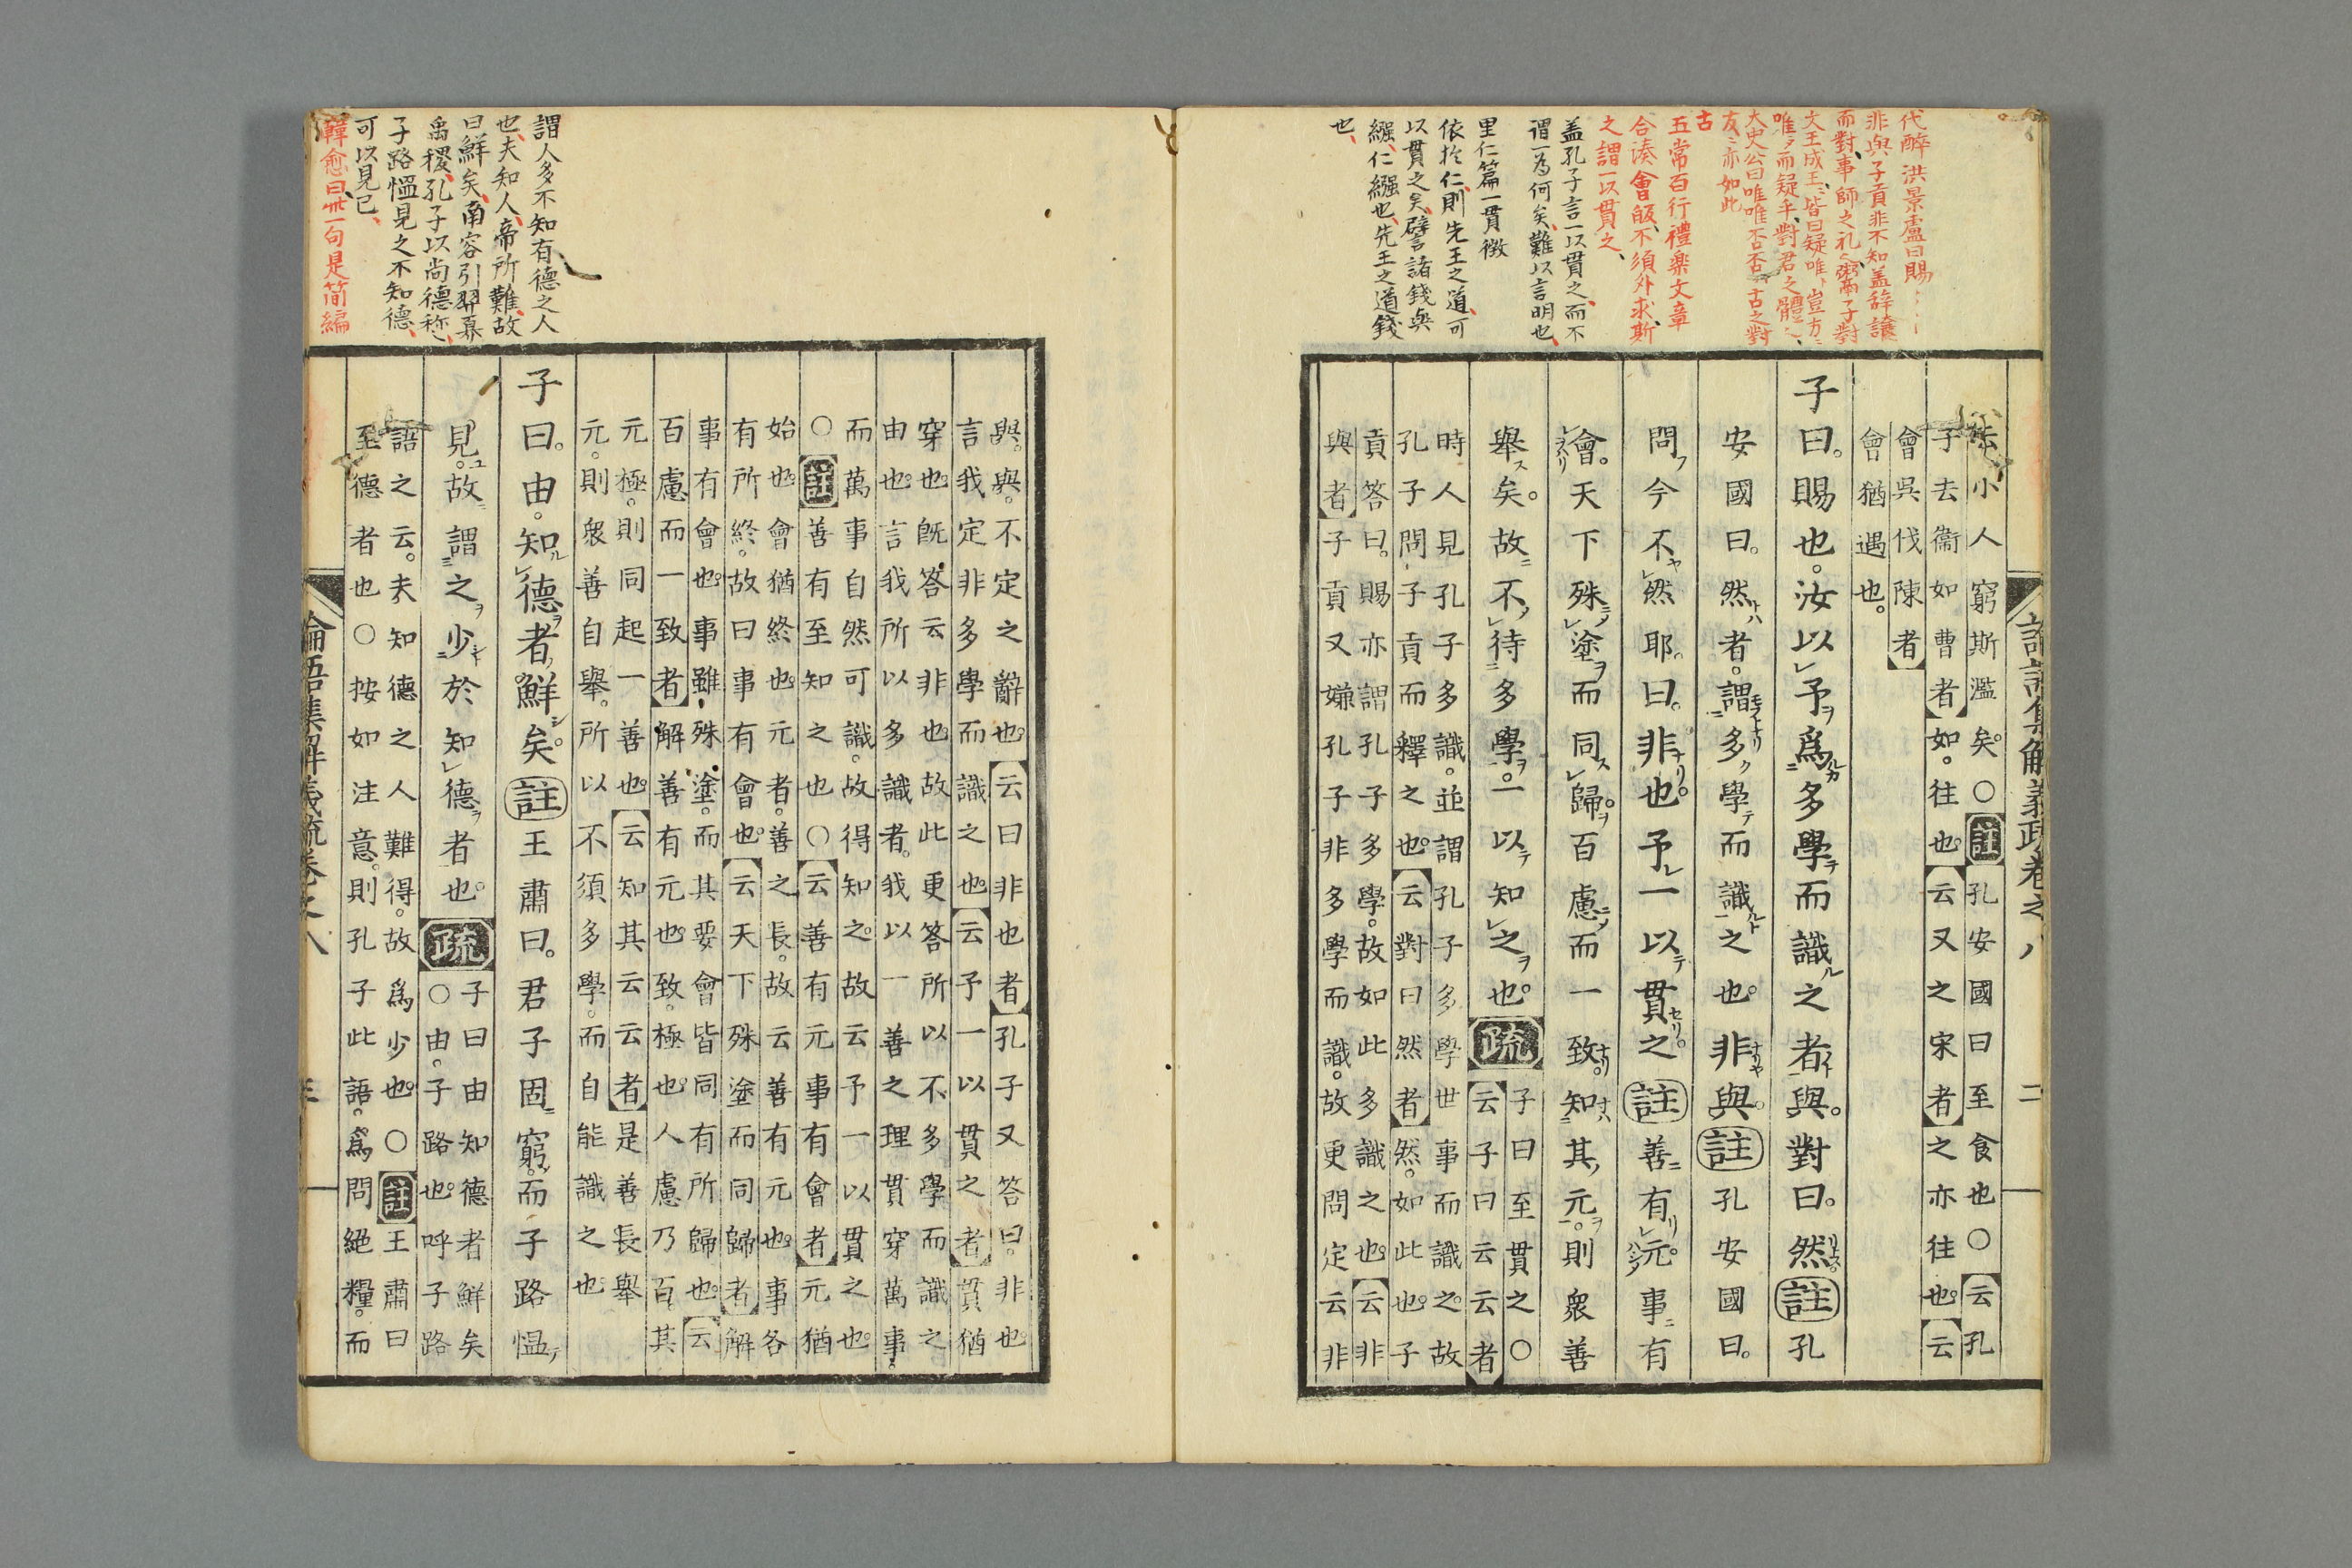 代醉 洪景盧曰賜
非與子貢非不知盖辞讓
而對事師之礼鬻子對
文王成王皆曰疑唯豈方
唯而疑乎對君之體
太史公曰唯唯否否古之對
友亦如此
古
五常百行禮楽文章
合湊會皈不須外求斯
之謂一以貫之
盖孔子言一以貫之而不
謂一為何矣難以言明也
里仁篇一貫徴
依於仁則先王之道可
以貫之矣譬諸錢與
繦仁繦也先王之道錢
也
論語集解義疏卷之八 二
云小人窮斯濫矣。○註孔安國曰至食也○云孔
子去衞如曹者如。往也。云又之宋者之亦往也。云
會呉伐陳者
會猶遇也。
子曰。賜也。汝以予爲多學而識之者與。對曰。然。註孔
安國曰。然者。謂多學而識之也。非與。註孔安國曰。
問今不然耶。曰。非也。予一以貫之。註善有元。事有
會。天下殊塗而同歸。百慮而一致。知其元。則衆善
舉矣。故不待多學。一以知之也。疏子曰至貫之○
云子曰云云者
時人見孔子多識。並謂孔子多學世事而識之。故
孔子問子貢而釋之也。云對曰然者然。如此也。子
貢答曰。賜亦謂孔子多學。故如此多識之也。云非
與者子貢又嫌孔子非多學而識。故更問定云非
謂人多不知有德之人
也夫知人帝所難故
曰鮮矣南容引羿奡
禹稷孔子以尚德称
子路慍見之不知德
可以見已
韓愈曰此一句是簡編
與。與。不定之辭也。云曰非也者孔子又答曰。非也。
言我定非多學而識之也。云予一以貫之者貫猶
穿也。既答云非也故此更答所以不多學而識之
由也。言我所以多識者。我以一善之理貫穿萬事
而萬事自然可識。故得知之。故云予一以貫之也。
○註善有至知之也○云善有元事有會者元猶
始也。會猶終也。元者。善之長。故云善有元也。事各
有所終。故曰事有會也。云天下殊塗而同歸者解
事有會也。事雖殊塗。而其要會皆同有所歸也。云
百慮而一致者解善有元也。致。極也。人慮乃百。其
元極。則同起一善也。云知其云云者是善長舉
元。則衆善自舉。所以不須多學。而自能識之也
子曰。由。知德者鮮矣。註王肅曰。君子固窮。而子路慍
見。故謂之少於知德者也。疏子曰由知德者鮮矣
○由。子路也。呼子路
語之云。夫知德之人難得。故爲少也。○註王肅曰
至德者也○按如注意。則孔子此語。爲問絕糧。而
論語集解義疏卷之八